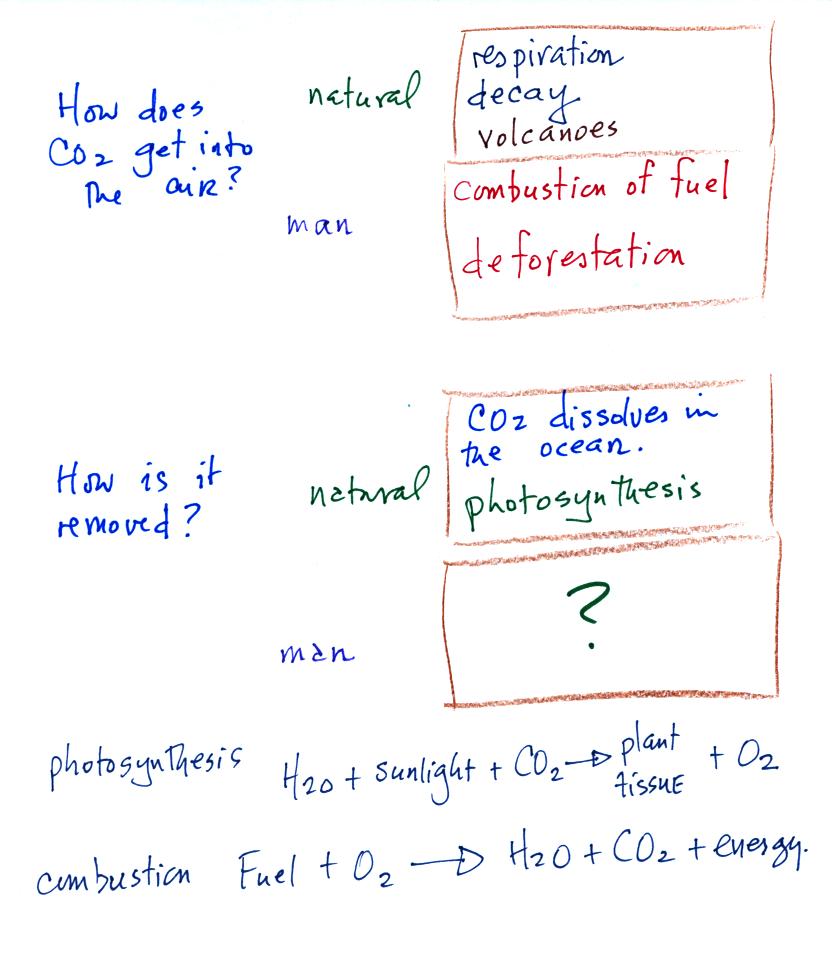 How does
CO2 get into
the air?
natural
respiration
decay
volcanoes
man
combustion of fuel
deforestation
How is it
removed?
natural
CO2 dissolves in
the ocean.
photosynthesis
man
?
photosynthesis H2O + sunlight + CO2 → plant tissue + O2
combustion Fuel + O2 → H2O + CO2 + energy.